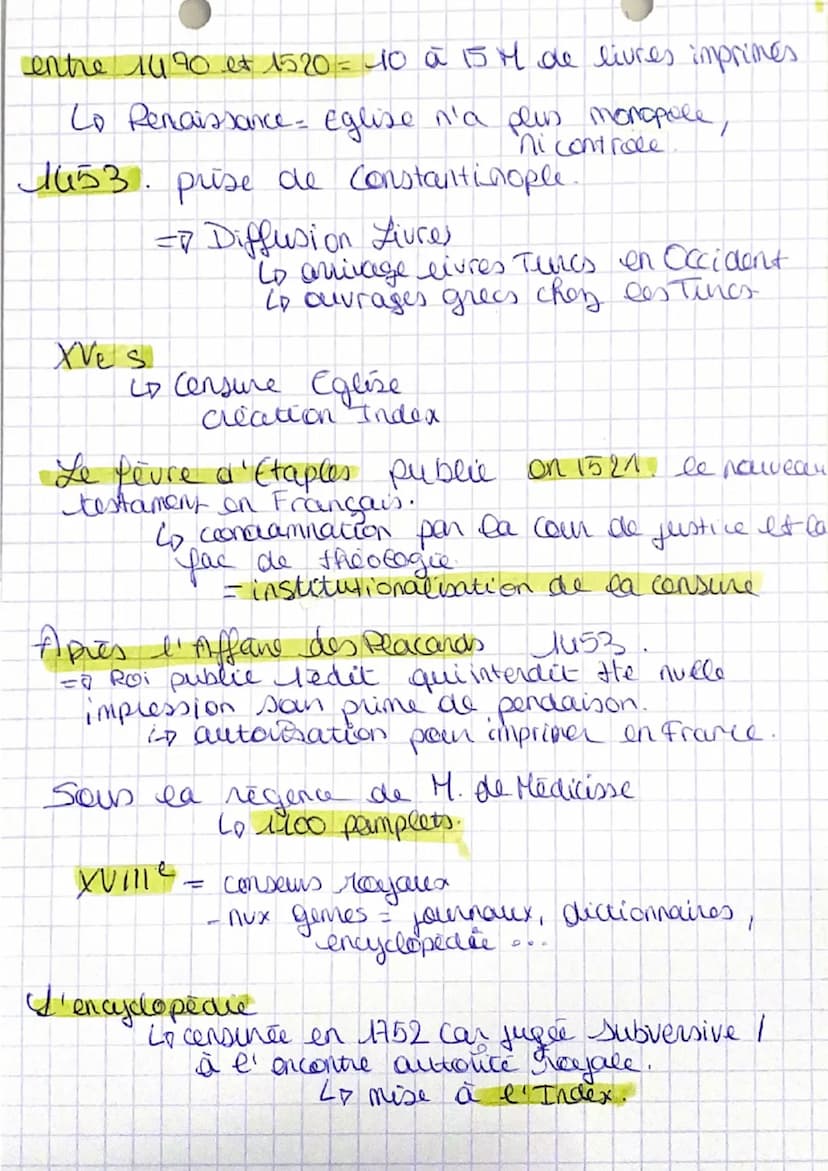 entre 1490 et 1520 = 10 à 15 M de livres imprimés
↳ Renaissance = Eglise n'a plus monopole,
ni contrôle.
1453. prise de Constantinople.
=> Diffusion Livres
↳ arrivage livres Turcs en Occident
↳ ouvrages grecs chez les Turcs
XVe s
↳ Censure Eglise
création Index
Le fèvre d'Étaples publie en 1521. le nouveau
testament en Français.
↳ condamnation par la cour de justice et la
fac de théologie.
= institutionalisation de la censure
Après l'Affaire des Placards 1453.
=> Roi publie 1 édit qui interdit tte nvelle
impression sous prime de pendaison.
↳ autorisation pour imprimer en France.
Sous la régence de M. de Médicisse
↳ 1200 pamplets.
XVIIIe = censeurs royaux
- nvx genres = journaux, dictionnaires,
encyclopédie ...
L'encyclopédie
↳ censurée en 1752 car jugée subversive /
à l'encontre autorité Royale.
↳ mise à l'Index.